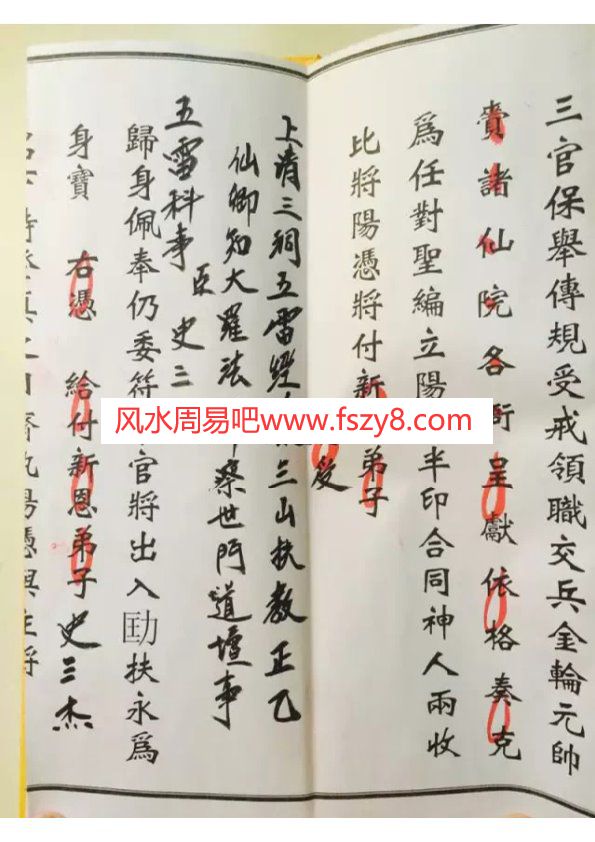 三官保舉傳規受戒領職交兵金輪元帥
賫諸仙院各衙呈獻依格奏克
為任對聖編立陽半印合同神人兩收
比將陽憑將付新弟子
受
上清三洞五雷三山扶教正乙
仙卿知大羅法察世門道壇事
五雷科事
臣史三
歸身佩奉仍委符官將出入扶永為
身寶右憑給付新恩弟子史三杰
风水周易吧www.fszy8.com